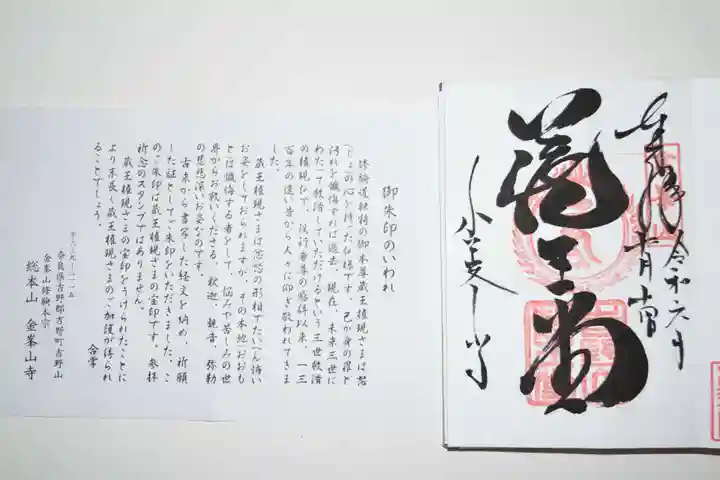 奉拝
令和六年
蔵王堂
金峯山寺
御朱印のいわれ
修験道独特の御本尊蔵王権現さまは恕
(じょ)の心を持った仏様です。己が身の罪と
汚れを懺悔すれば過去、現在、未来三世に
わたって救済していただけるという三世救済
の権現仏で、役行者尊の感得以来、一三
百年の遠い昔から人々に仰ぎ敬われてきま
した。
蔵王権現さまは忿怒の形相でたいへん怖い
お姿をしておられますが、その本地おおも
とは懺悔する者をして、悩みや苦しみの世
界からお救いくださる、釈迦、観音、弥勒
の慈悲深いお姿なのです。
古来から書写した経文を納め、祈願
した証としてご朱印をいただきました。こ
のご朱印は蔵王権現さまの宝印です。参拝
記念のスタンプではありません。
蔵王権現さまの宝印をうけられたことに
より末長く蔵王権現さまのご加護が得られ
ることでしょう。
合掌
〒六三九ー三一一五
奈良県吉野郡吉野町吉野山
金峯山修験本宗
総本山 金峯山寺